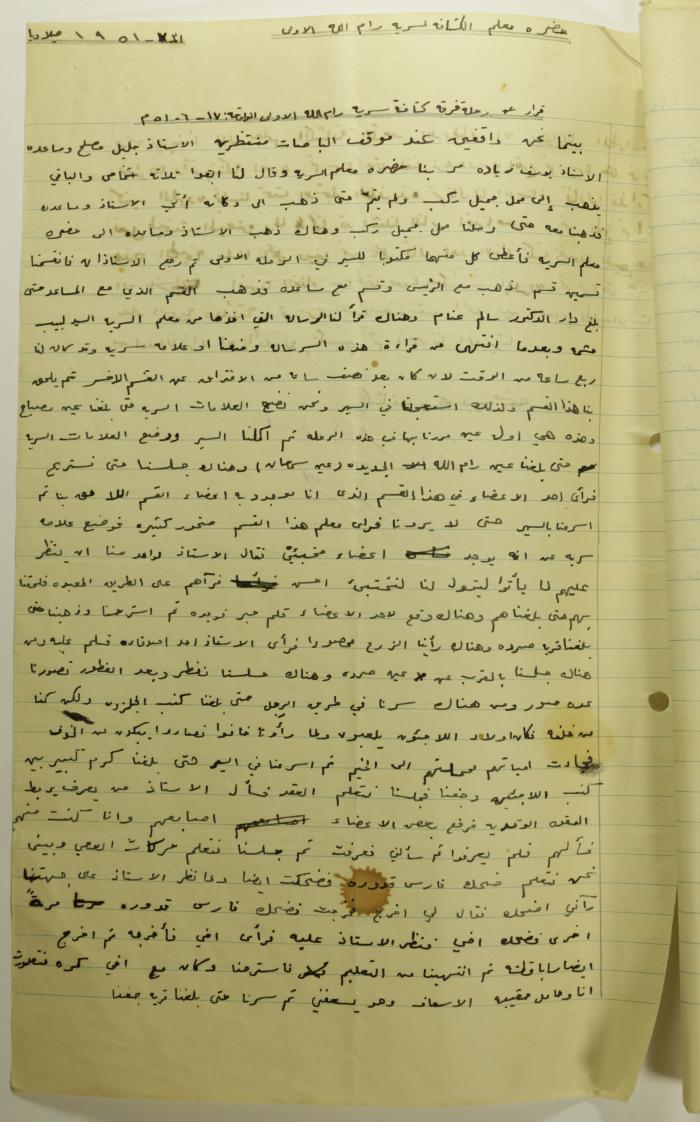 حضرة معلم الكشافة لسرية رام الله الاولى
١٩٥١ ميلاديا
قرار عن رحلة فرقة كشافة سرية رام الله الاولى ١٧-٦-٥١ م
بينما نحن واقفين عند موقف الباصات منتظرين الاستاذ جليل مصلح ومساعده
الاستاذ يوسف زياده مر بنا حضرة معلم السرية وقال لنا ابقوا ثلاثة اشخاص والباقي
يذهب إلى محل جميل ركب ولم يتم حتى ذهب الى دكانه أتى الاستاذ ومساعده
فذهبنا معه حتى وصلنا محل جميل ركب وهناك ذهب الاستاذ ومساعده الى حضرة
معلم السرية فأعطى كل منهما مكتوبا للسير في الرحله الاولى ثم رجع الاستاذان فانقسمنا
قسمين قسم ذهب مع الرئيس وقسم مع مساعده فذهب القسم الذي مع المساعد حتى
بلغ دار الدكتور سالم غنام وهناك قرأ لنا الرسالة التي اخذها من معلم السرية السيد لبيب
وبعدما انتهى من قراءة هذه الرسالة وضعنا اول علامة سرية وقد كان لنا
ربع ساعة من الوقت لان كان بعد نصف ساعة من الافتراق عن القسم الاخر ثم يلحق
بنا هذا القسم ولذلك استعجلنا في السير ونحن نضع العلامات السرية حتى بلغنا عين مصباح
وهذه هي اول عين مررنا بها في هذه الرحلة ثم اكملنا السير ووضع العلامات السرية
حتى بلغنا عين رام الله الجديدة (عين سمعان) وهناك جلسنا حتى نستريح
فرأى احد الاعضاء في هذا القسم الذي انا موجود به اعضاء القسم اللاحق بنا ثم
اسرعنا بالسير حتى لا يرونا فرأى معلم هذا القسم صخور كثيرة فوضع علامة
سرية عن انه يوجد اعضاء مختبئين فقال الاستاذ لواحد منا ان ينظر
عليهم لما يأتوا ليقول لنا لنختبئ احسن فرآهم على الطريق المعبده فلحقنا
بهم حتى بلغناهم وهناك وقع لاحد الاعضاء قلم حبر فوجده ثم استرحنا وذهبنا حتى
بلغنا قرية صرده وهناك رأينا الزرع محصودا فرأى الاستاذ احد اصدقاءه فسلم عليه ومن
هناك جلسنا بالقرب من عين صرده وهناك جلسنا نفطر وبعد الفطور تصورنا
عدة صور ومن هناك سرنا في طريق الرجل حتى بلغنا كنب الجلزون ولكن كنا
من خلفه فكان اولاد اللاجئون يلعبون ولما رأونا خافوا فصاروا يبكون من الخوف
فجاءت امهاتهم الى الخيم ثم اسرعنا في السير حتى بلغنا كرم كبير بين
كنب اللاجئين وجفنا فجلسنا نتعلم العقد فسأل الاستاذ من يعرف يربط
العقده الوتدية فرفع بعض الاعضاء اصابعهم وانا كنت منهم
فسألهم فلم يعرفوا ثم سألني فعرفت ثم جلسنا نتعلم حركات العصي وبينما
نحن نتعلم ضحك فارس قدوره فضحكت ايضا ولما نظر الاستاذ على جهتنا
رآني اضحك فقال لي اخرج فخرجت فضحك فارس قدوره مرة
اخرى فضحك اخي فنظر الاستاذ عليه فرأى اخي فأخرجه ثم اخرج
ايضا سابا قلته ثم انتهينا من التعليم فاسترحنا وكان مع اخي كره
انا وحامل حقيبة الاسعاف وهو يسعفني ثم سرنا حتى بلغنا قرية جفنا